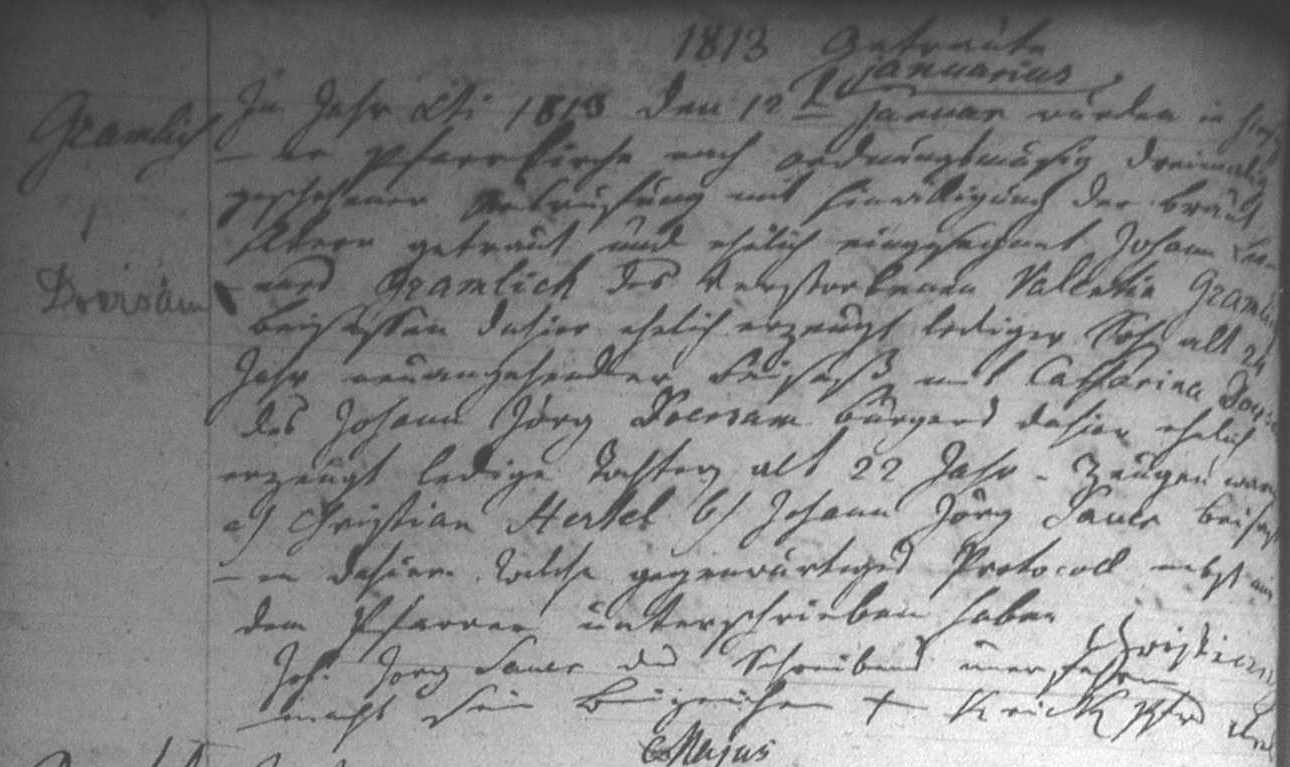 1813 Getraute
Januarius
Gramlich
Im Jahr Xti 1813 den 12t Januar wurden in hies
er Pfarrkirche nach ordnungsmäsig dreimalig
geschehener Ausrufung mit Einwilligung der Braut
Eltern getraut und ehelich eingesegnet Johann Leo
nard Gramlich des verstorbenen Vallentin Gramli
Dreisam
Beisassen dahier ehelich erzeugt lediger Sohn alt 24
Jahr neuangehender Beisaß mit Catharina
des Johann Jörg Doersam bürgers dahier ehelich
erzeugt ledige Tochter alt 22 Jahr - Zeugen waren
a) Christian Hertel b) Johann Jörg Sauer beisass
en dahier. Welche gegenwärtiges Protocoll nebst mir
dem Pfarrer unterschrieben haben
Christian
Joh. Jörg Sauer des Schreibens unerfahren
macht sein Beizeichen + Krick Pfr
Majus